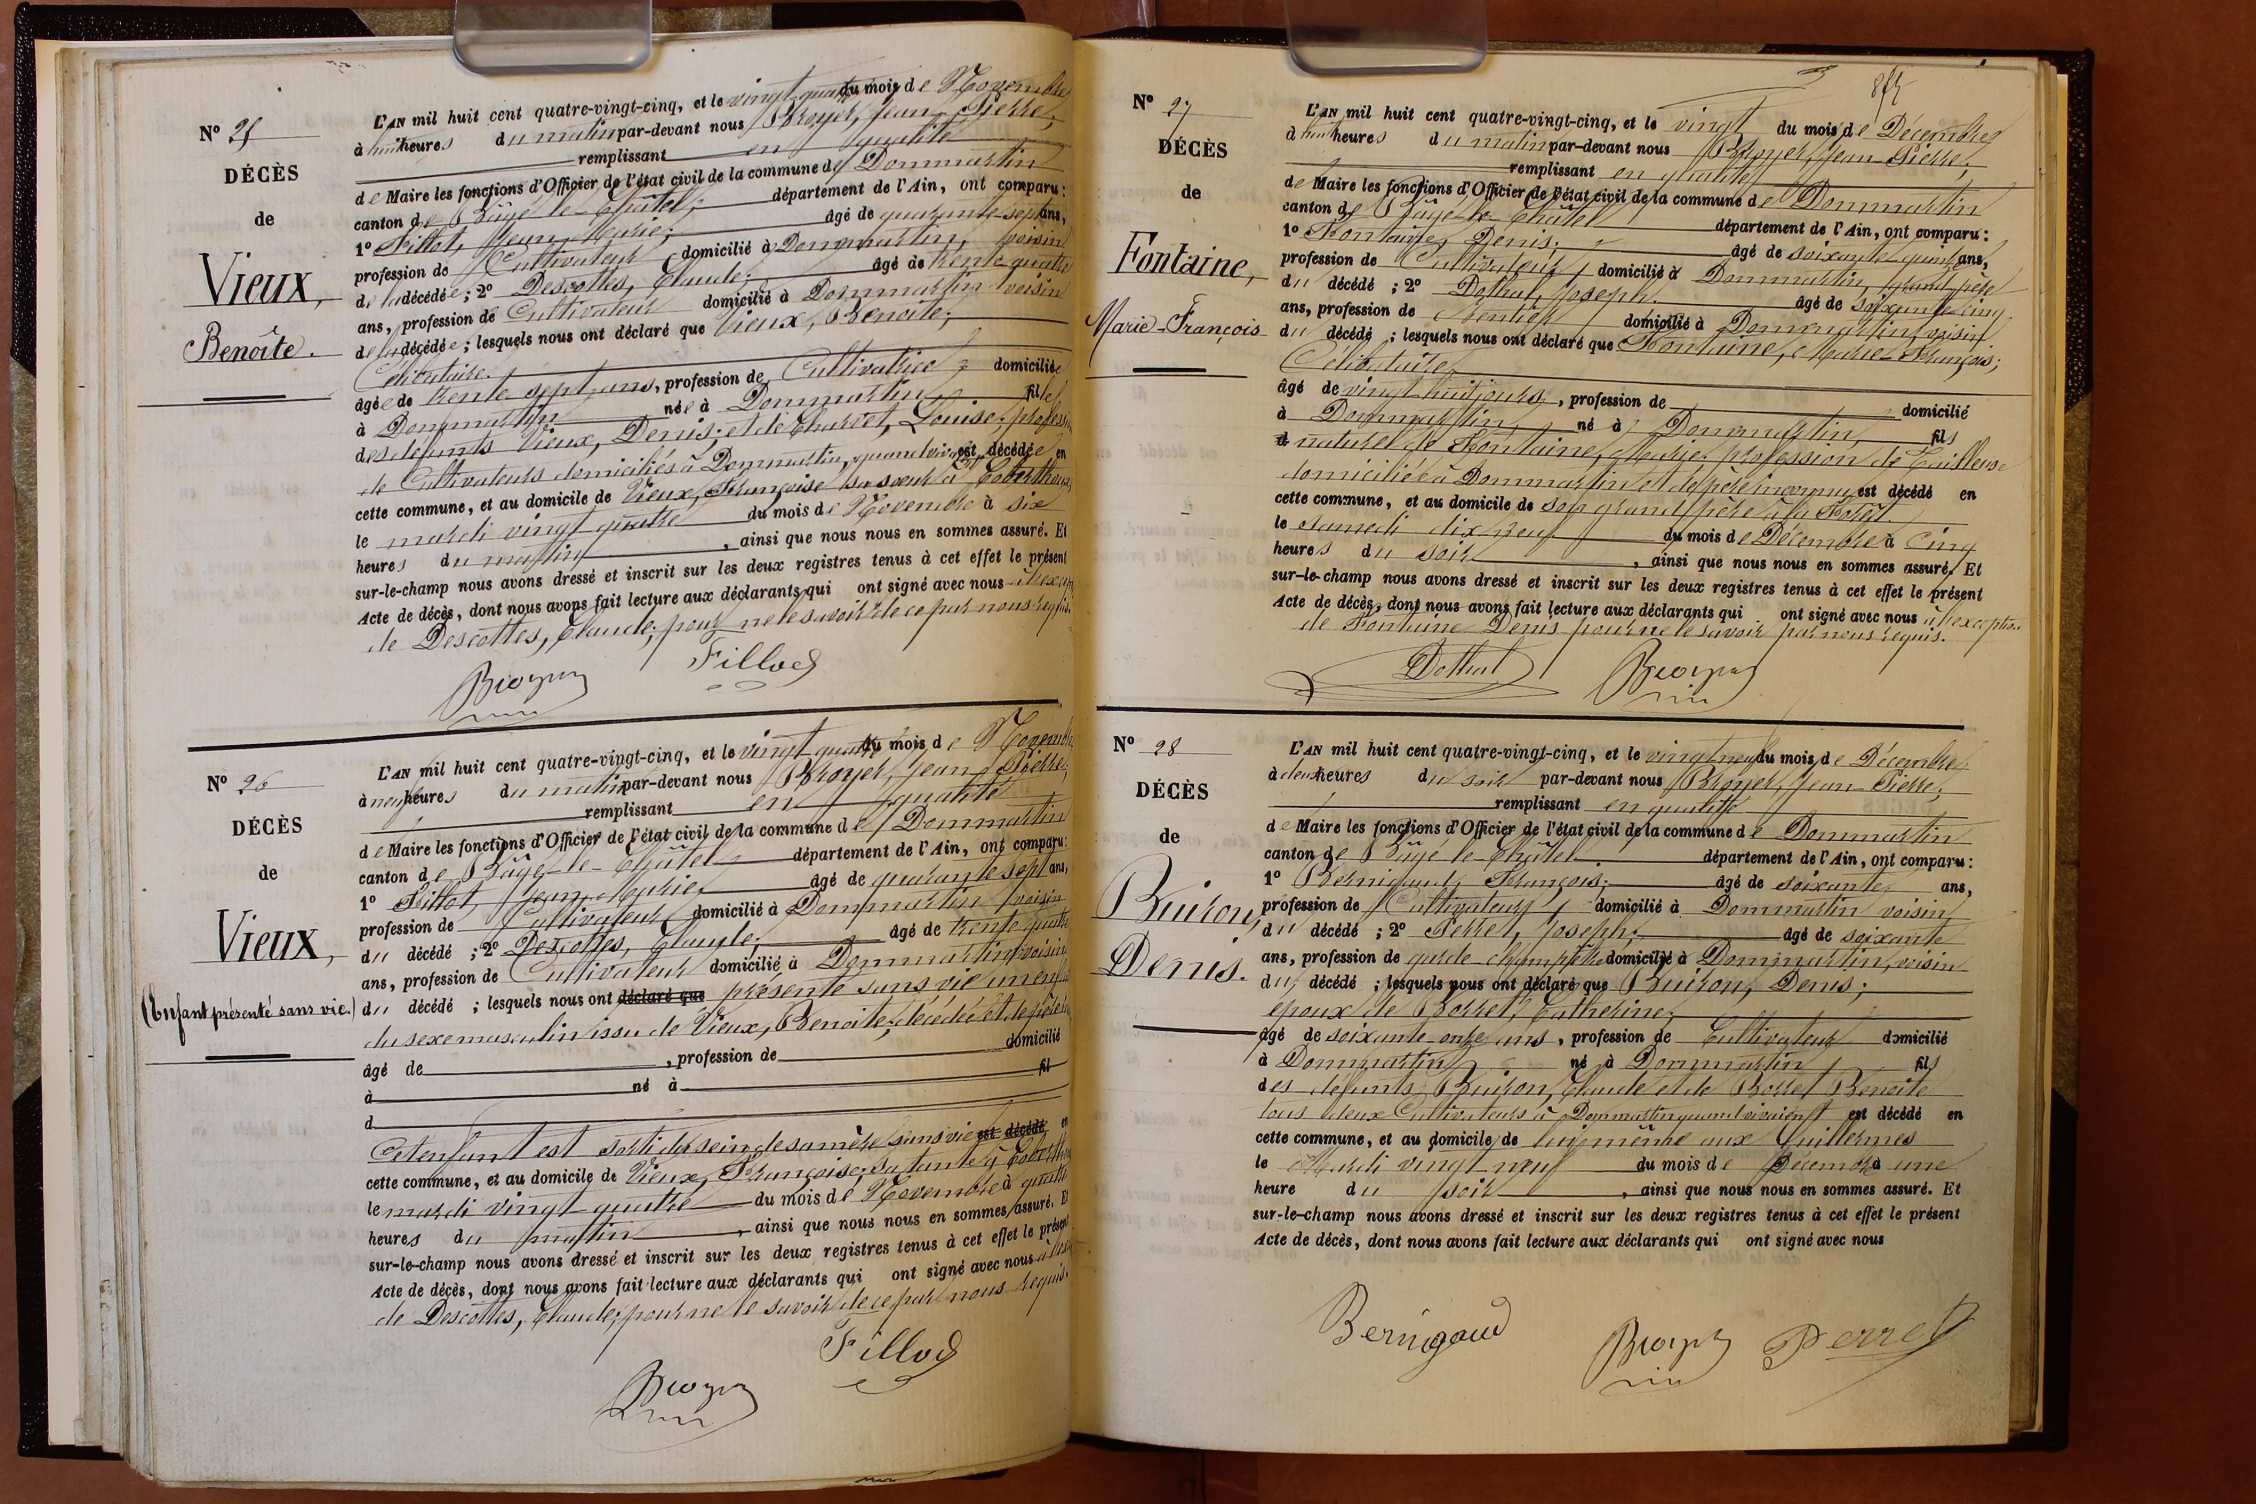 N° 25
DÉCÈS
de
Vieux,
Benoîte.
L'AN mil huit cent quatre-vingt-cinq, et le vingt-quatre du mois de Novembre
à huit heures du matin par-devant nous Broyer, Jean-Pierre,
remplissant en qualité
de Maire les fonctions d'Officier de l'état civil de la commune de Dommartin
canton de Bâgé-le-Châtel, département de l'Ain, ont comparu:
1° Fillot, Jean-Marie; âgé de quarante-sept ans,
profession de Cultivateur, domicilié à Dommartin, voisin
de la décédée; 2° Descottes, Claude; âgé de trente-quatre
ans, profession de Cultivateur domicilié à Dommartin voisin
de la décédée; lesquels nous ont déclaré que Vieux, Benoîte;
Célibataire,
âgée de trente sept ans, profession de Cultivatrice domiciliée
à Dommartin née à Dommartin fille
des défunts Vieux, Denis; et de Churlet, Louise, profession
de Cultivateurs domiciliés à Dommartin, quand vivaient est décédée en
cette commune, et au domicile de Vieux, Françoise sa sœur à
le mardi vingt quatre du mois de Novembre à six
heures du matin, ainsi que nous nous en sommes assuré. Et
sur-le-champ nous avons dressé et inscrit sur les deux registres tenus à cet effet le présent
Acte de décès, dont nous avons fait lecture aux déclarants qui ont signé avec nous
de Descottes, Claude; pour ne le savoir de ce par nous requis.
Broyer Fillod
N° 26
DÉCÈS
de
Vieux,
(Enfant présenté sans vie.)
L'AN mil huit cent quatre-vingt-cinq, et le vingt-quatre du mois de Novembre
à neuf heures du matin par-devant nous Broyer, Jean-Pierre,
remplissant en qualité
de Maire les fonctions d'Officier de l'état civil de la commune de Dommartin
canton de Bâgé-le-Châtel département de l'Ain, ont comparu:
1° Fillot, Jean-Marie, âgé de quarante sept ans,
profession de Cultivateur domicilié à Dommartin voisin
du décédé; 2° Descottes, Claude; âgé de trente quatre
ans, profession de Cultivateur domicilié à Dommartin voisin
du décédé; lesquels nous ont déclaré que présenté sans vie un enfant
du sexe masculin issu de Vieux, Benoîte; décédée et de père
âgé de, profession de domicilié
à né à fil
d
Cet enfant est sorti du sein de sa mère sans vie est décédé en
cette commune, et au domicile de Vieux, Françoise; sa tante à
le mardi vingt quatre du mois de Novembre à quatre
heures du matin, ainsi que nous nous en sommes assuré. Et
sur-le-champ nous avons dressé et inscrit sur les deux registres tenus à cet effet le présent
Acte de décès, dont nous avons fait lecture aux déclarants qui ont signé avec nous
de Descottes, Claude; pour ne le savoir de ce par nous requis.
Broyer Fillod
N° 27
DÉCÈS
de
Fontaine,
Marie-François
L'AN mil huit cent quatre-vingt-cinq, et le vingt du mois de Décembre
à huit heures du matin par-devant nous Broyer, Jean-Pierre,
remplissant en qualité
de Maire les fonctions d'Officier de l'état civil de la commune de Dommartin
canton de Bâgé-le-Châtel département de l'Ain, ont comparu:
1° Fontaine, Denis; âgé de soixante quinze ans,
profession de Cultivateur, domicilié à Dommartin, grand-père
du décédé; 2° Dothal, Joseph. âgé de soixante-cinq
ans, profession de Rentier domicilié à Dommartin, voisin
du décédé; lesquels nous ont déclaré que Fontaine, Marie-François;
Célibataire,
âgé de vingt-huit jours, profession de domicilié
à Dommartin, né à Dommartin, fils
d naturel de Fontaine, Marie, profession de Tailleuse
domiciliée à Dommartin et de père inconnu est décédé en
cette commune, et au domicile de son grand père à la Forêt.
le samedi dix neuf du mois de Décembre à cinq
heures du soir, ainsi que nous nous en sommes assuré. Et
sur-le-champ nous avons dressé et inscrit sur les deux registres tenus à cet effet le présent
Acte de décès, dont nous avons fait lecture aux déclarants qui ont signé avec nous
de Fontaine Denis pour ne le savoir par nous requis.
Dothal Broyer
N° 28
DÉCÈS
de
Buiron,
Denis.
L'AN mil huit cent quatre-vingt-cinq, et le vingt neuf du mois de Décembre
à deux heures du soir par-devant nous Broyer, Jean-Pierre;
remplissant en qualité
de Maire les fonctions d'Officier de l'état civil de la commune de Dommartin
canton de Bâgé-le-Châtel département de l'Ain, ont comparu:
1° Bernigaud, François; âgé de soixante ans,
profession de Cultivateur, domicilié à Dommartin voisin
du décédé; 2° Perret, Joseph; âgé de soixante
ans, profession de garde champêtre domicilié à Dommartin, voisin
du décédé; lesquels nous ont déclaré que Buiron, Denis;
époux de Borret, Catherine;
âgé de soixante-onze ans, profession de Cultivateur domicilié
à Dommartin né à Dommartin, fils
des défunts Buiron, Claude et de Borret Benoîte
tous deux Cultivateurs à Dommartin quand vivaient est décédé en
cette commune, et au domicile de lui-même aux Guillermes
le Mardi vingt neuf du mois de Décembre à une
heure du soir, ainsi que nous nous en sommes assuré. Et
sur-le-champ nous avons dressé et inscrit sur les deux registres tenus à cet effet le présent
Acte de décès, dont nous avons fait lecture aux déclarants qui ont signé avec nous
Bernigaud Broyer Perret